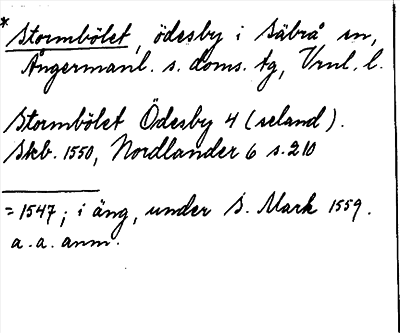 * Stormbölet, ödesby i Säbrå sn,
Ångermanl. s. doms. tg, Vrnl. l.
Stormbölet Ödesby 4 (seland).
Skb. 1550, Nordlander 6 s. 210
= 1547; i äng, under S. Mark 1559.
a. a. anm.